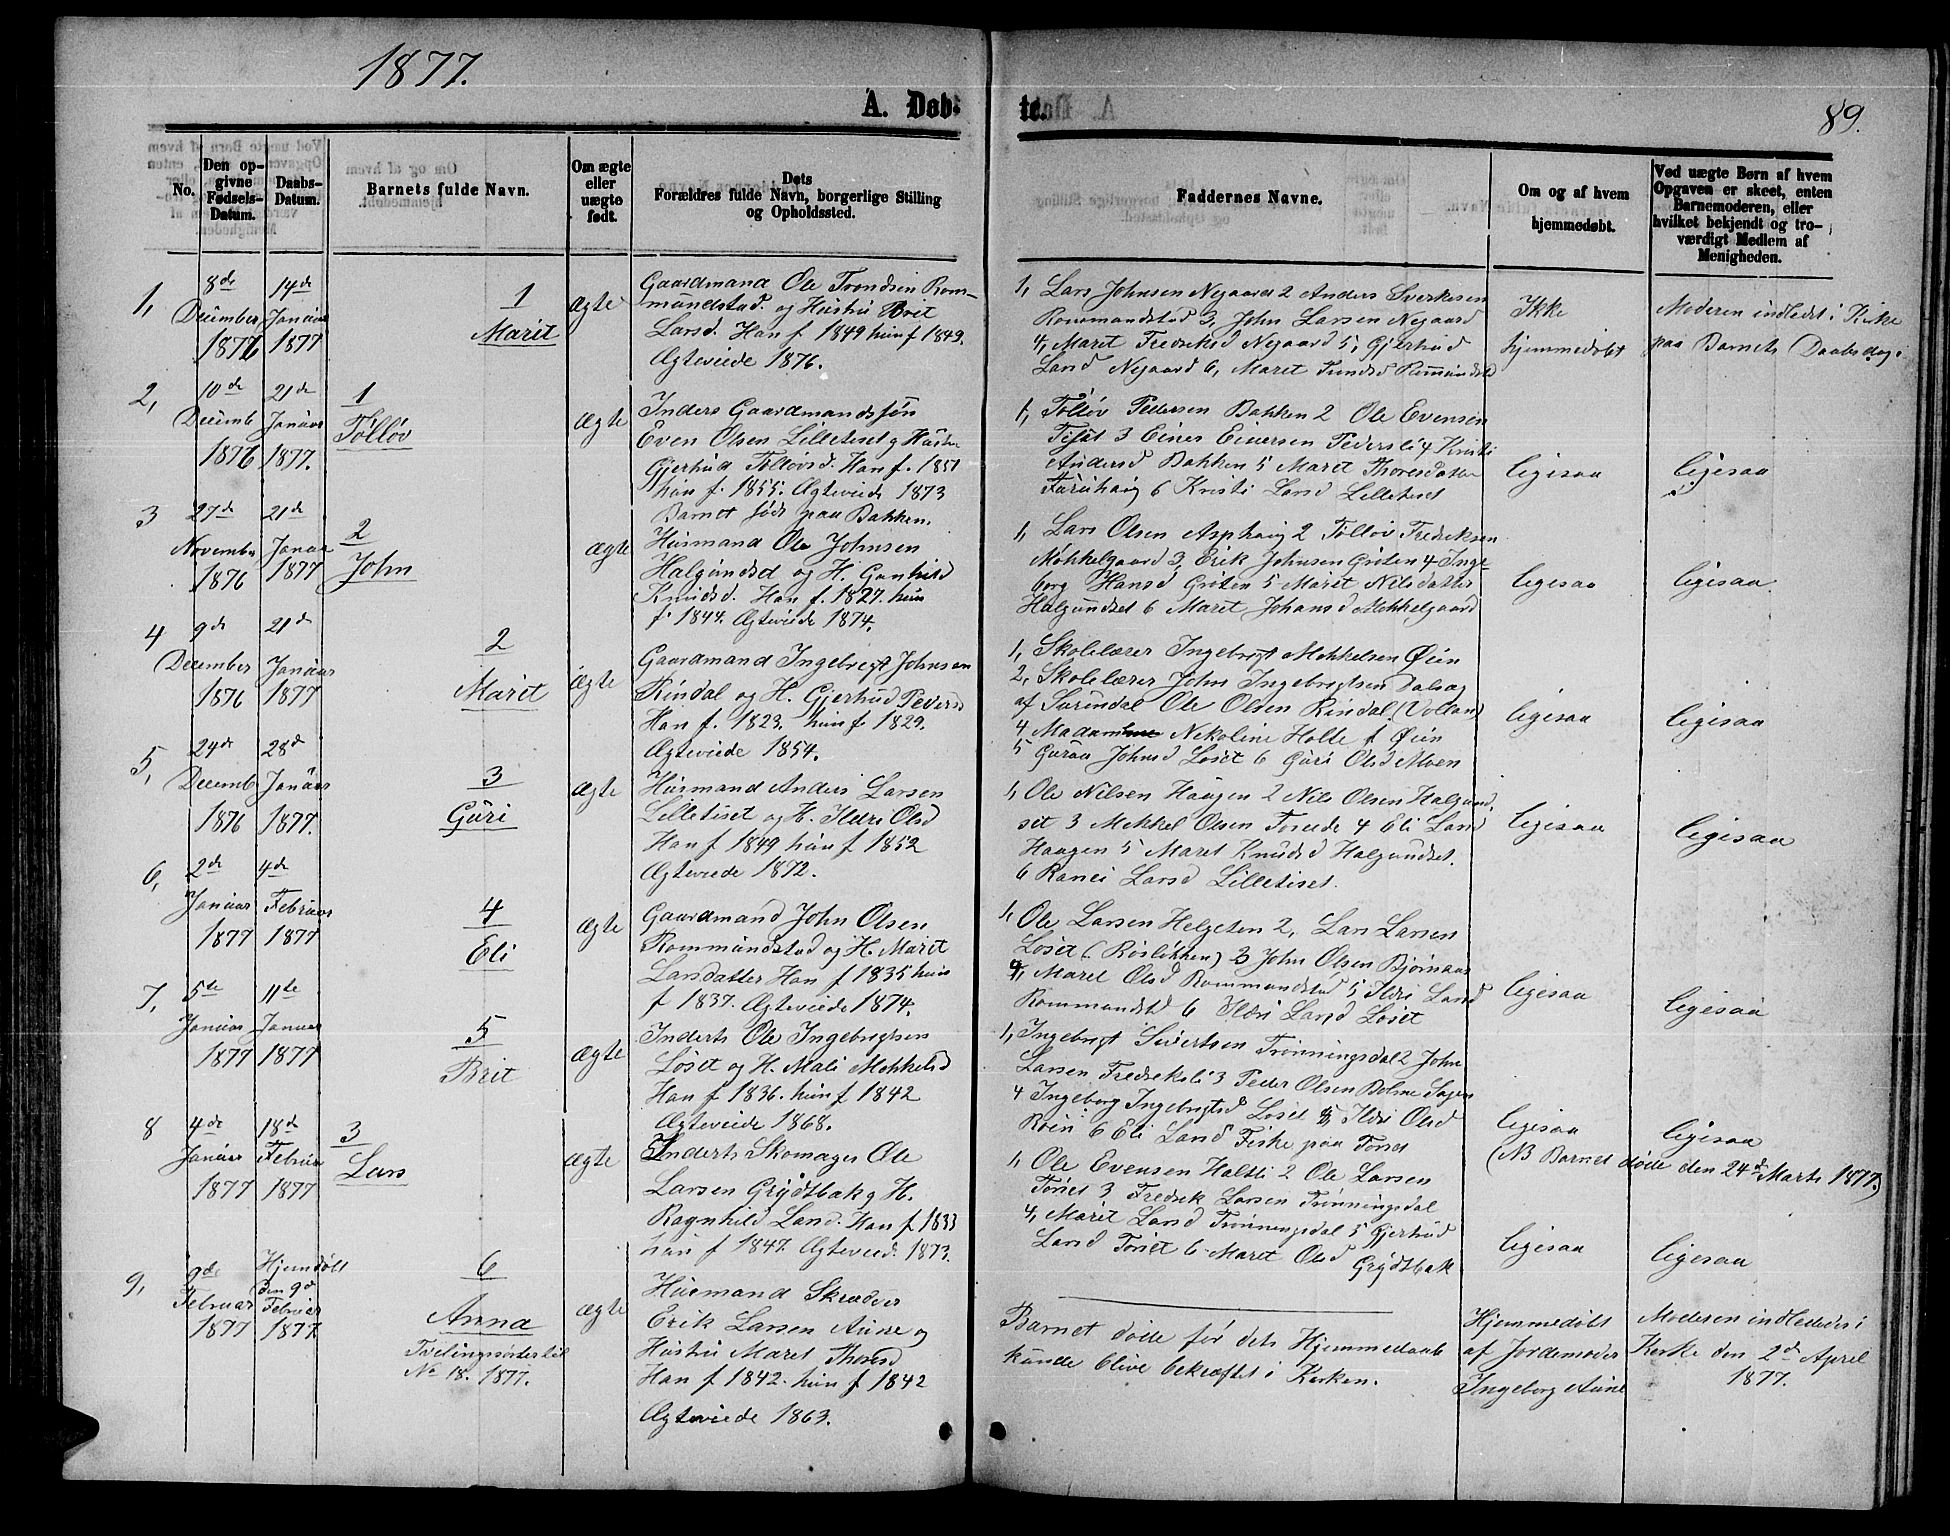 1877.
A. Døb-
te.
89.
No.
Den op-
givne
Fødsels-
Datum.
Daabs-
Datum.
Barnets fulde Navn.
Om ægte
eller
uægte
født.
Dets
Forældres fulde Navn, borgerlige Stilling
og Opholdssted.
Faddernes Navne.
Om og af hvem
hjemmedøbt.
Ved uægte Børn af hvem
Opgaven er skeet, enten
Barnemoderen, eller
hvilket bekjendt og tro-
værdigt Medlem af
Menigheden.
1,
8de
December
1876
14de
Januar
1877
1
Marit
Ægte
Gaardmand Ole Trondsen Rom-
mundstad og Hustru Brit
Larsd. Han f 1849 hun f 1849.
Ægteviede 1876.
1, Lars Johnsen Negaard 2 Anders Sverkesen
Rommundstad 3, John Larsen Negaard
4, Maret Fredriksd Negaard 5, Gjertrud
Larsd Negaard 6, Maret
Ikke
hjemmedøbt
Moderen indledet i Kirke
paa Barnets Daabsdag.
2,
10de
Decemb
1876
21de
Januar
1877.
1
Tølløv
Ægte
Inders Gaardmandssøn
Even Olsen Lilletiset og Hustru
Gjertrud Tølløvsd. Han f. 1851
hun f. 1855. Ægteviede 1873
Barnet født paa Bakken.
1, Tølløv Pedersen Bakken 2 Ole Evensen
Tiset 3 Einer Einersen Pedersli 4 Kristi
Andersd Bakken 5 Maret Thoresdatter
Furuhaug 6 Kristi Larsd Lilletiset
ligesaa
ligesaa
3
27de
November
1876
21de
Januar
1877
2
John
Ægte
Husmand Ole Johnsen
Halgundset og H. Gunhild
Knudsd. Han f. 1827. hun
f. 1844. Ægteviede 1874.
1, Lars Olsen Asphaug 2 Tølløv Fredriksen
Mokkelgaard 3, Erik Johnsen Grøten 4 Inge-
borg Hansd Grøten 5 Maret Nilsdatter
Halgundset 6 Maret Johansd Mokkelgaard
ligesaa
ligesaa.
4
9de
December
1876
21de
Januar
1877
2
Marit
Ægte
Gaardmand Ingebrigt Johnsen
Rindal og H. Gjertrud Pedersd
Han f. 1823. hun f 1829.
Ægteviede 1854.
1, Skolelærer Ingebrigt Mekkelsen Øien
2, Skolelærer John Ingebrigtsen Dalsæg
af Surendal Ole Olsen Rindal (Volland)
4 Madam Nekoline Holte f Øien
5 Guraa Johnsd Løset 6 Guri Olsd Moen
ligesaa
ligesaa
5,
24de
Decemb
1876
28de
Januar
1877.
3
Guri
Ægte
Husmand Anders Larsen
Lilletiset og H. Ildri Olsd
Han f 1849 hun f 1852
Ægteviede 1872.
1, Ole Nilsen Haugen 2 Nils Olsen Halgund-
set 3 Mekkel Olsen Torvede 4 Eli Larsd
Haugen 5 Maret Knudsd Halgundset.
6 Ranei Larsd Lilletiset.
ligesaa
ligesaa
6,
2de
Januar
1877
4de
Februar
1877
4
Eli
Ægte
Gaardmand John Olsen
Rommundstad og H. Marit
Larsdatter Han f 1835 hun
f 1837. Ægteviede 1874.
1, Ole Larsen Helgeten 2, Lars Larsen
Løset (Røsløkken) 3 John Olsen Bjørnaas
4, Maret Olsd Rommundstad 5 Ildri Larsd
Rommundstd 6 Ildri Larsd Løset
ligesaa
ligesaa
7,
5te
Januar
1877
11te
Januar
1877
5
Brit
Ægte
Inderts Ole Ingebrigtsen
Løset og H. Mali Mekkelsd
Han f 1836. hun f 1842
Ægteviede 1868.
1, Ingebrigt Sivertsen Trønningsdal 2 John
Larsen Fredreksli 3 Peder Olsen Bolme
4 Ingeborg Ingebrigtsd Løset 5 Ildri Olsd
Røen 6 Eli Larsd Fiske paa Torset
ligesaa
ligesaa
(NB Barnet døde den 24de Marts 1877.)
8
4de
Januar
1877
18de
Februar
1877
3
Lars
Ægte
Inderts Skomager Ole
Larsen Grydtbak og H.
Ragnhild Larsd. Han f 1833
hun f 1847. Ægteviede 1873.
1, Ole Evensen Haltli 2 Ole Larsen
Torset 3, Fredrik Larsen Trønningsdal
4, Marit Larsd Trønningsdal 5 Gjertrud
Larsd Torset 6. Maret Olsd Grydtbak
ligesaa
ligesaa
9,
9de
Februar
1877
Hjemdøbt
den 9de
Februar
1877.
6
Anna
Tvelingsøster til
No 18. 1877.
Ægte
Husmand Skrædder
Erik Larsen Aune og
Hustru Maret Thoresd
Han f 1842. hun f 1842
Ægteviede 1863.
Barnet døde før dets Hjemmedaab
kunde blive bekræftet i Kerken.
Hjemmedøbt
af Jordemoder
Ingeborg Aune
Moderen indlededes i
Kerke den 2de April
1877.